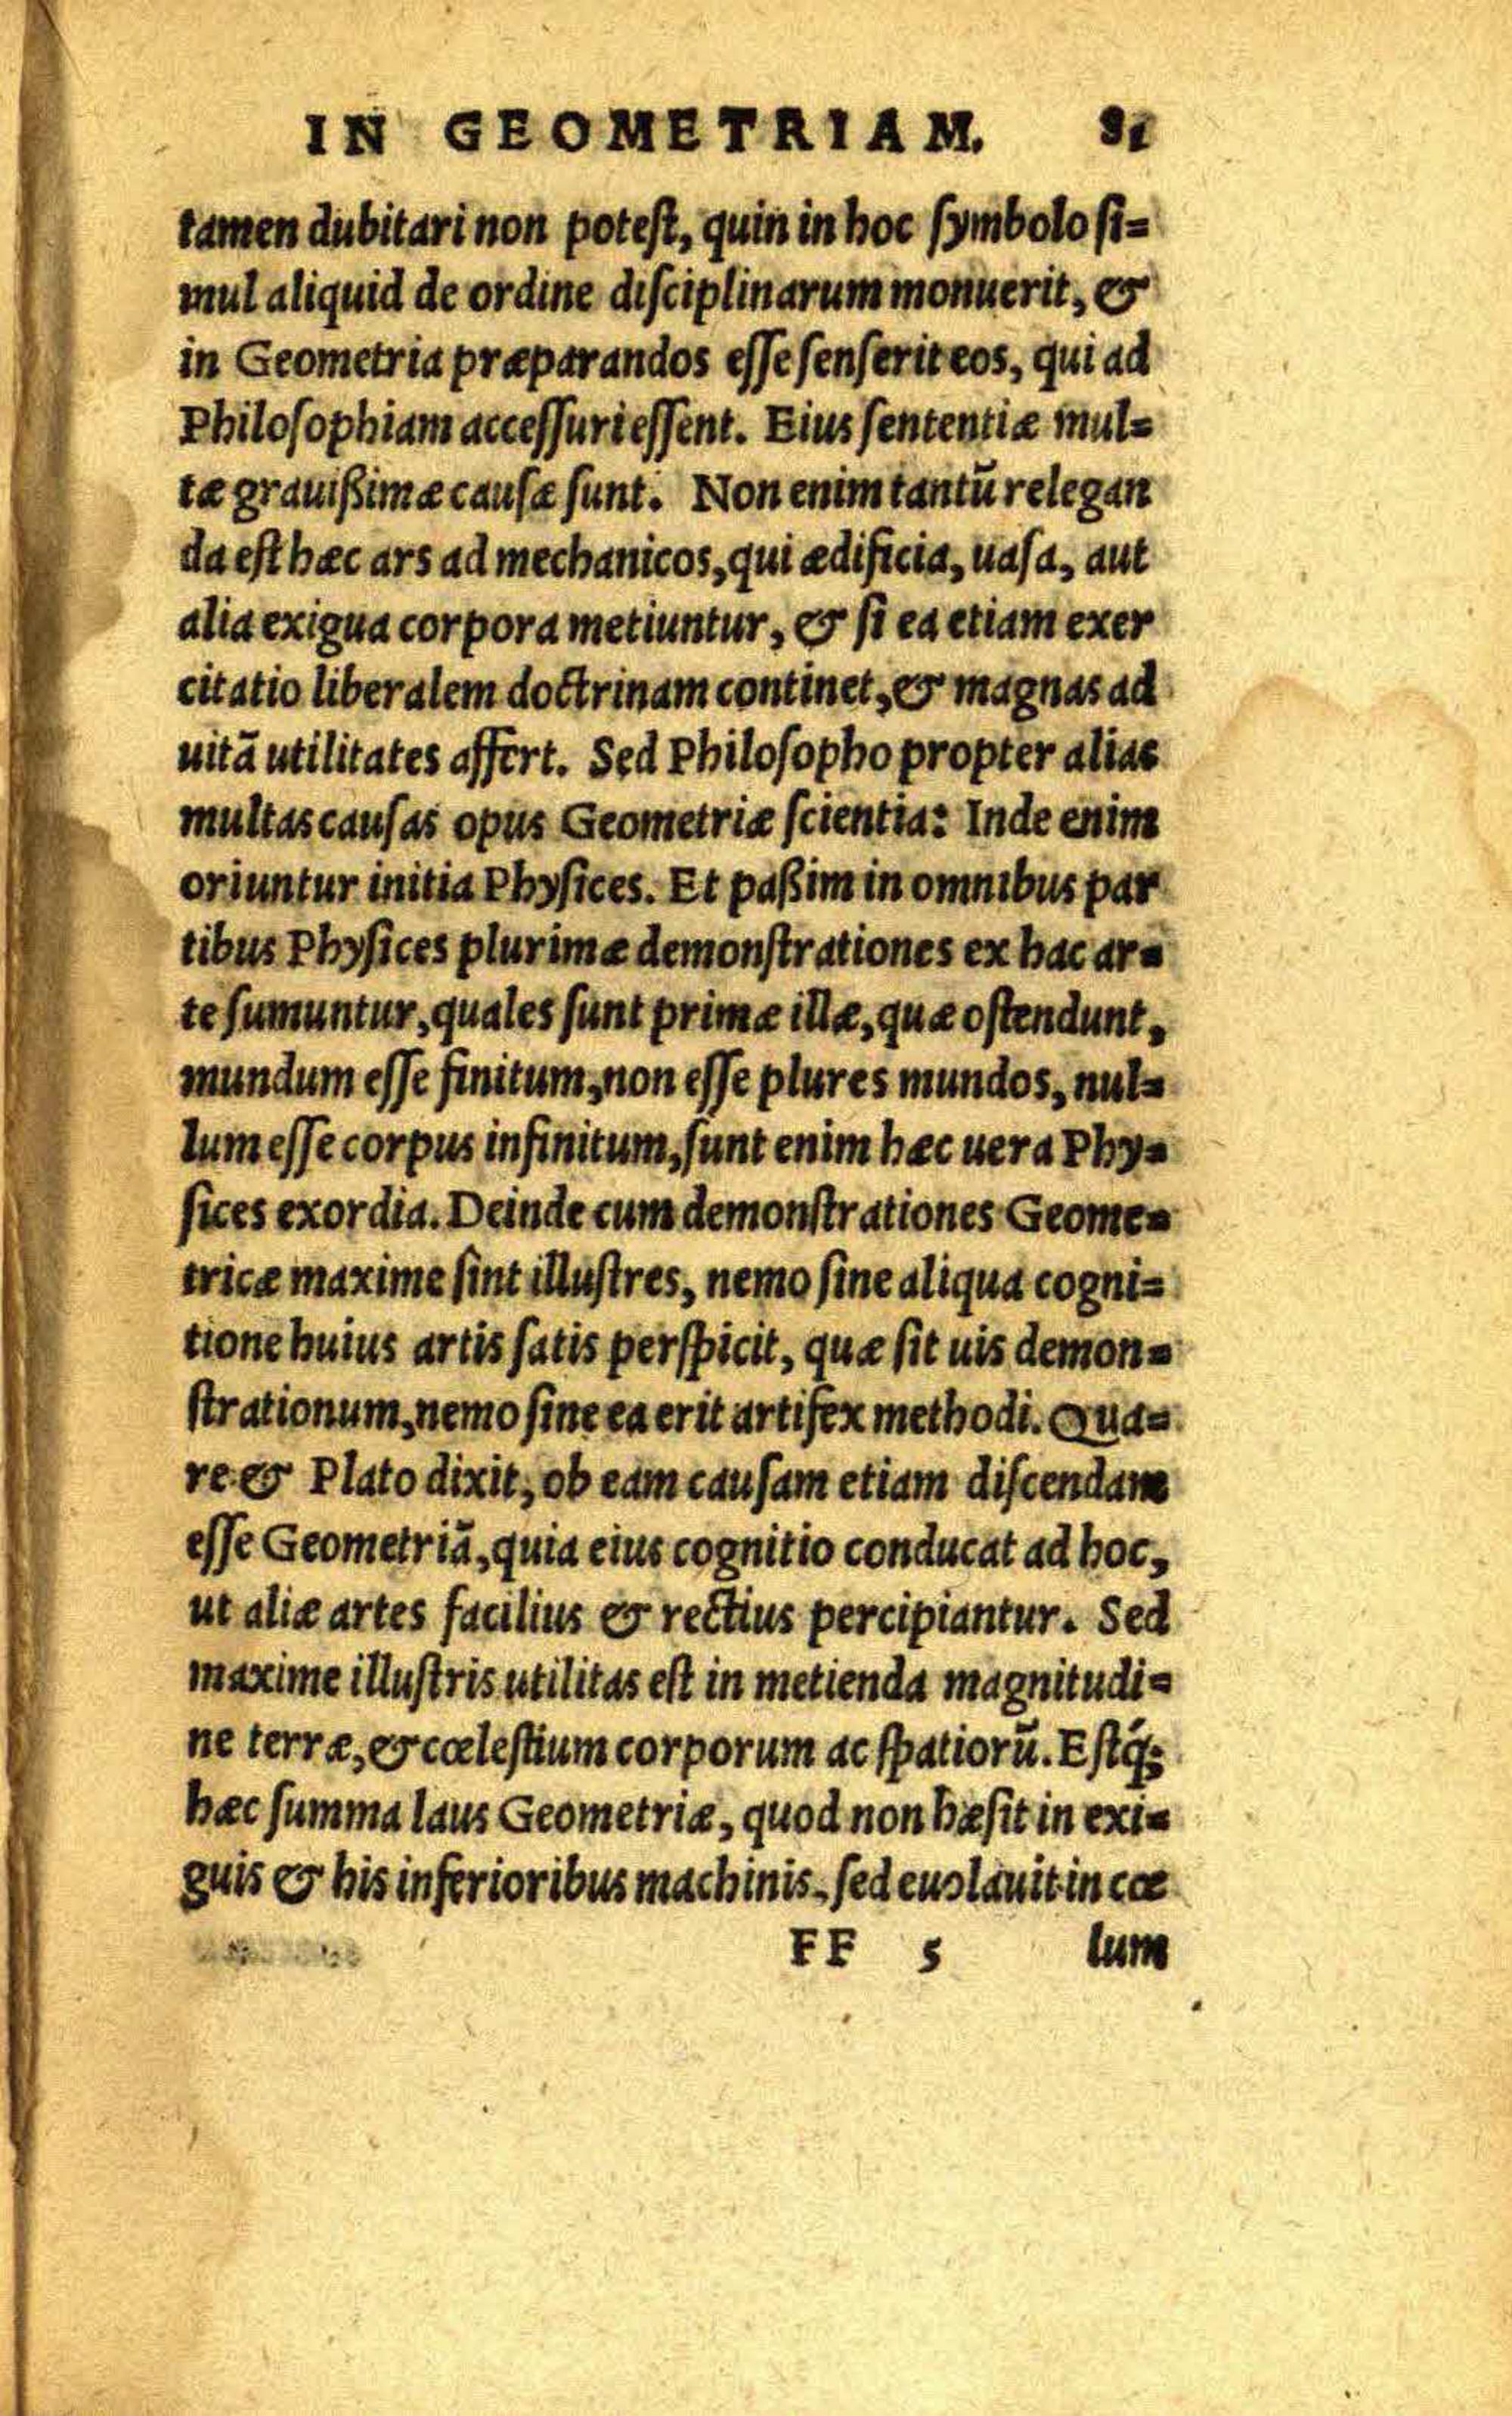 IN GEOMETRIAM. 81
tamen dubitari non poteſt, quin in hoc ſymbolo ſi=
mul aliquid de ordine diſciplinarum monuerit, &
in Geometria præparandos eſſe ſenſerit eos, qui ad
Philoſophiam acceſſuri eſſent. Eius ſententiæ mul=
tæ grauißimæ cauſæ ſunt. Non enim tantũ relegan
da eſt hæc ars ad mechanicos, qui ædificia, uaſa, aut
alia exigua corpora metiuntur, & ſi ea etiam exer
citatio liberalem doctrinam continet, & magnas ad
uitã utilitates affert. Sed Philoſopho propter alias
multas cauſas opus Geometriæ ſcientia: Inde enim
oriuntur initia Phyſices. Et paßim in omnibus par
tibus Phyſices plurimæ demonſtrationes ex hac ar=
te ſumuntur, quales ſunt primæ illæ, quæ oſtendunt,
mundum eſſe finitum, non eſſe plures mundos, nul=
lum eſſe corpus infinitum, ſunt enim hæc uera Phy=
ſices exordia. Deinde cum demonſtrationes Geome=
tricæ maxime ſint illuſtres, nemo ſine aliqua cogni=
tione huius artis ſatis perſpicit, quæ ſit uis demon=
ſtrationum, nemo ſine ea erit artifex methodi. Qua=
re & Plato dixit, ob eam cauſam etiam diſcendam
eſſe Geometriã, quia eius cognitio conducat ad hoc,
ut aliæ artes facilius & rectius percipiantur. Sed
maxime illuſtris utilitas eſt in metienda magnitudi=
ne terræ, & cœleſtium corporum ac ſpatiorũ. Eſtq́;
hæc ſumma laus Geometriæ, quod non hæſit in exi=
guis & his inferioribus machinis, ſed euolauit in cœ
FF 5 lum